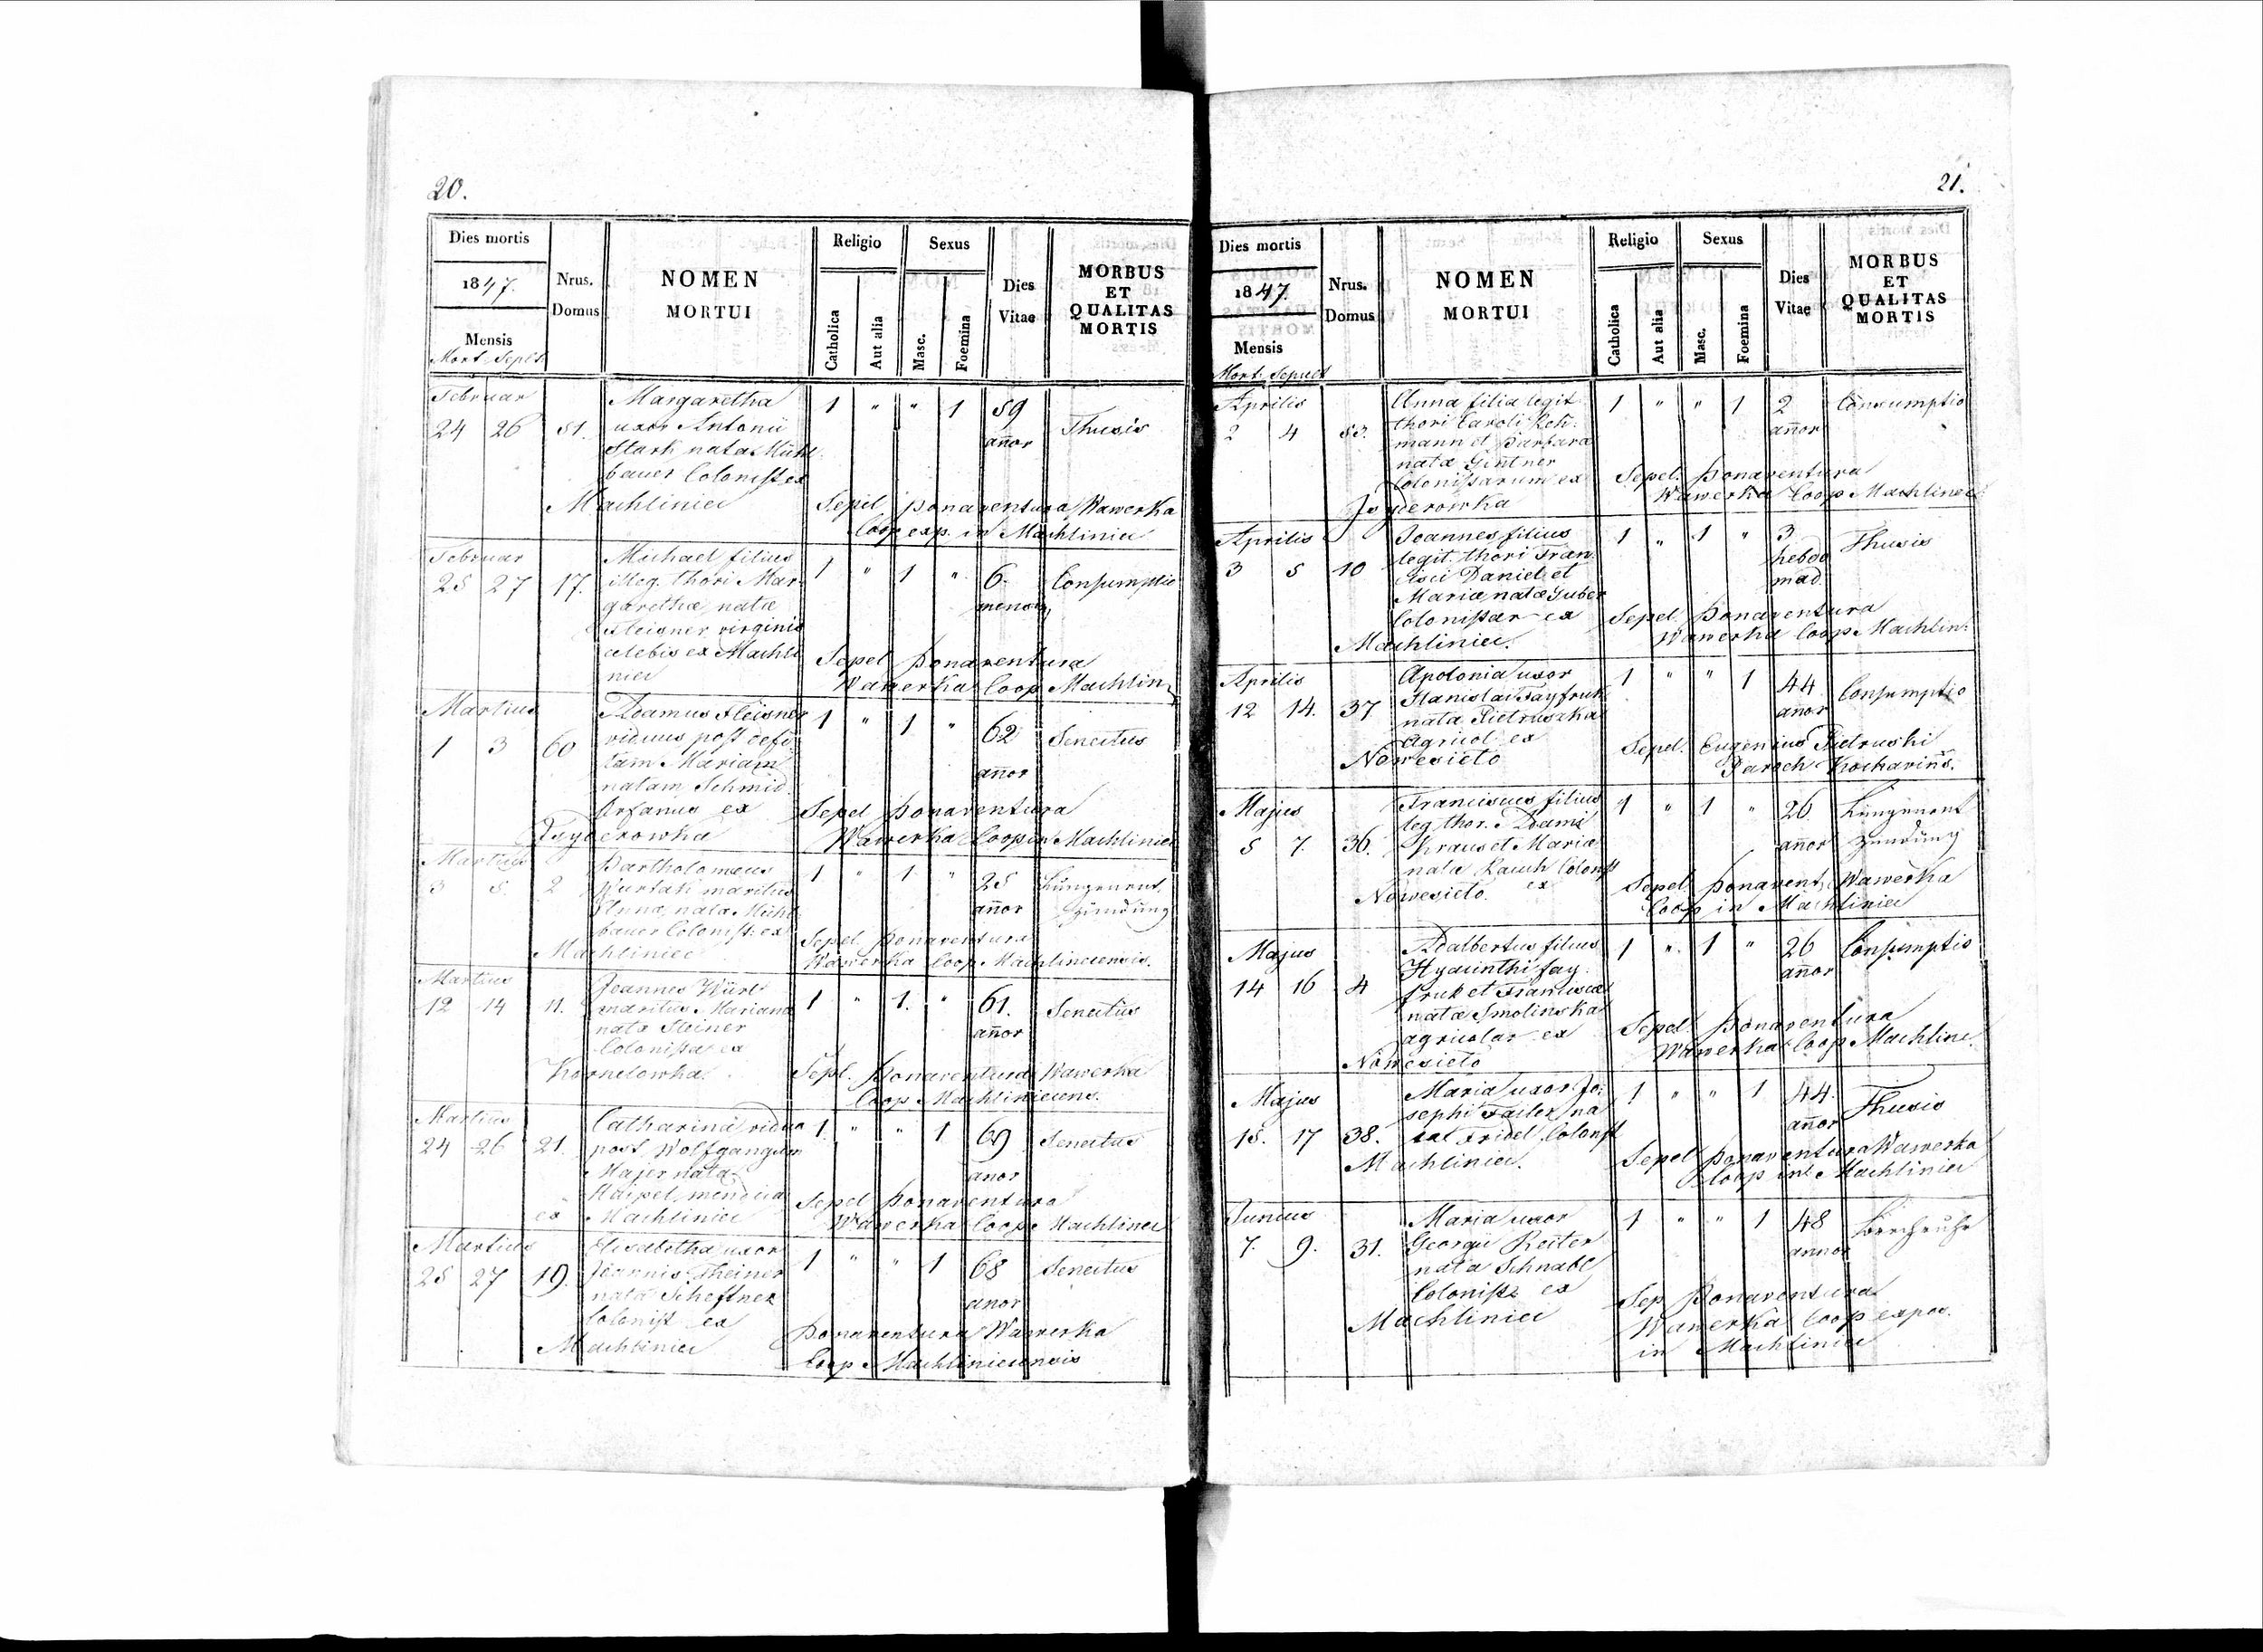 20.
Dies mortis
1847.
Mensis
Mort. Sepult.
Nrus.
Domus
NOMEN
MORTUI
Religio
Catholica
Aut alia
Sexus
Masc.
Foemina
Dies
Vitae
MORBUS
ET
QUALITAS
MORTIS
Februar
24 26 51.
Margaretha
uxor Antonii
Stark nata Mühl
bauer Colonist ex
Machliniec
1 " " 1 59
añor
Thusis
Sepel. Bonaventura Wawerka
Coop exp. in Machliniec
Februar
25 27 17.
Michael filius
illeg. thori Mar-
garethæ natæ
Fleisner virginis
celebis ex Machli
niec
1 " 1 " 6.
mensiu
Consumptio
Sepel Bonaventura
Wawerka Coop Machlin
Martius
1 3 60
Adamus Fleisner
viduus post defc
tam Mariam
natam Schmid
Orfanus ex
Izyderowka
1 " 1 " 62
añor
Senectus
Sepel Bonaventura
Wawerka Coop in Machliniec
Martius
3 5. 2
Bartholomeus
maritus
Anna nata Mühl
bauer Colonist: ex
Machliniec
1 " 1 " 25
añor
Lungenent
zündung
Sepel Bonaventura
Wawerka Coop Machliniecensis.
Martius
12 14 11.
Joannes Würl
maritus Mariana
nata Steiner
Colonista ex
Kornelowka.
1 " 1. " 61.
añor
Senectus
Sepl. Bonaventura Wawerka
Coop Machliniecens.
Martius
24 26 21.
Catharina vidua
post Wolfgangum
Majer nata
Haipel mendica
ex Machliniec
1. " " 1 69
anor
Senectus
Sepel Bonaventura
Wawerka Coop Machliniec
Martius
25 27 19.
Elisabetha uxor
Joannis Theiner
nata Scheffner
Colonist ex
Machliniec
1 " " 1 68
anor
Senectus
Bonaventura Wawerka
Coop Machliniecensis
21.
Dies mortis
1847.
Mensis
Mort: Sepult
Nrus.
Domus
NOMEN
MORTUI
Religio
Catholica
Aut alia
Sexus
Masc.
Foemina
Dies
Vitae
MORBUS
ET
QUALITAS
MORTIS
Aprilis
2 4 53.
Anna filia legit
thori Caroli Reh-
mann et Barbara
nata Gintner
Colonissarum ex
Izyderowka
1 " " 1 2
añor
Consumptio
Sepel. Bonaventura
Wawerka Coop Machliniec
Aprilis
3 5 10
Joannes filius
legit. thori Fran
cisci Daniel et
Mariæ natæ Huber
Colonissar ex
Machliniec.
1 " 1 " 3
hebdo
mad
Thusis
Sepel Bonaventura
Wawerka Coop Machlin:
Aprilis
12 14. 37
Apolonia uxor
Stanislai Fayfruk
nata Pietruszka
agricol ex
Nowesioło
1 " " 1 44
añor
Consumptio
Sepel. Eugenius Pietruski
Paroch Kochavins.
Majus
5 7. 36.
Franciscus filius
leg thor. Adami
Kraus et Maria
nata Rauch Colonist
ex
Nowesioło.
1 " 1 " 26.
añor
Lungenent
zündung
Sepel Bonavent. Wawerka
Coop in Machliniec
Majus
14 16 4
Adalbertus filius
Hyacinthi fay.
fruk et Francisca
nata Smolinska
agricolar ex
Nowesioło
1 " 1 " 26
añor
Consumptio
Sepel. Bonaventura
Wawerka Coop Machlinc.
Majus
15. 17 38.
Maria uxor Jo:
sephi Failer na
Fridel Colonist
Machliniec.
1 " " 1 44.
añor
Thusis
Sepel Bonaventura Wawerka
Coop in Machliniec
Junius
7. 9. 31.
Maria uxor
Georgii Reiter
nata Schnabl
Colonista ex
Machliniec
1 " " 1 48
annor
Sep Bonaventura
Wawerka Coop expos.
in Machliniec